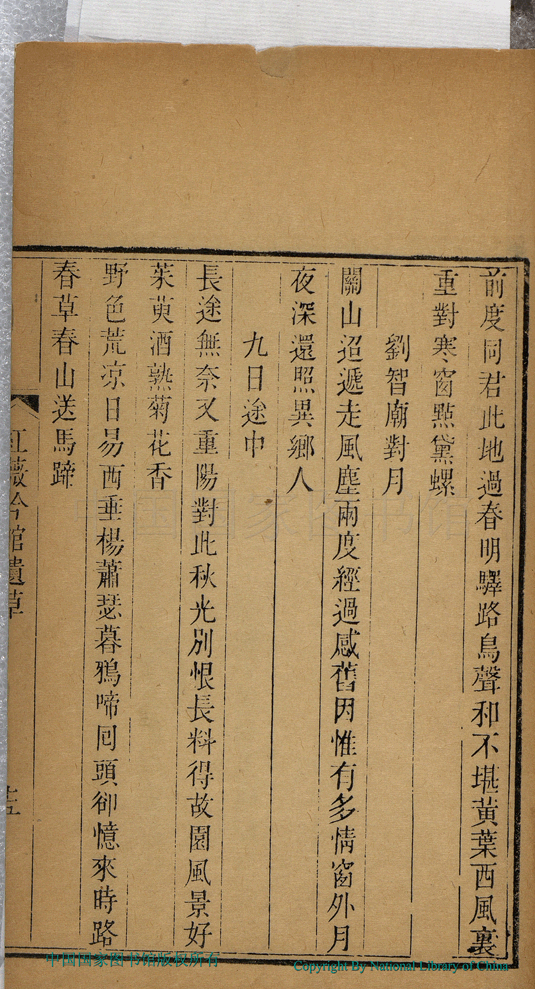 前度同君此地過春明驛路鳥聲和不堪黃葉西風裏
重對寒窗點黛螺
劉智廟對月
關山迢遞走風塵兩度經過感舊因惟有多情窗外月
夜深還照異鄉人
九日途中
長途無奈又重陽對此秋光別恨長料得故園風景好
茱萸酒熟菊花香
野色荒凉日易西垂楊蕭瑟暮鴉啼囘頭卻憶來時路
春草春山送馬蹄
紅薇吟館遺草
中国国家图书馆版权所有
Copyright By National Library of China